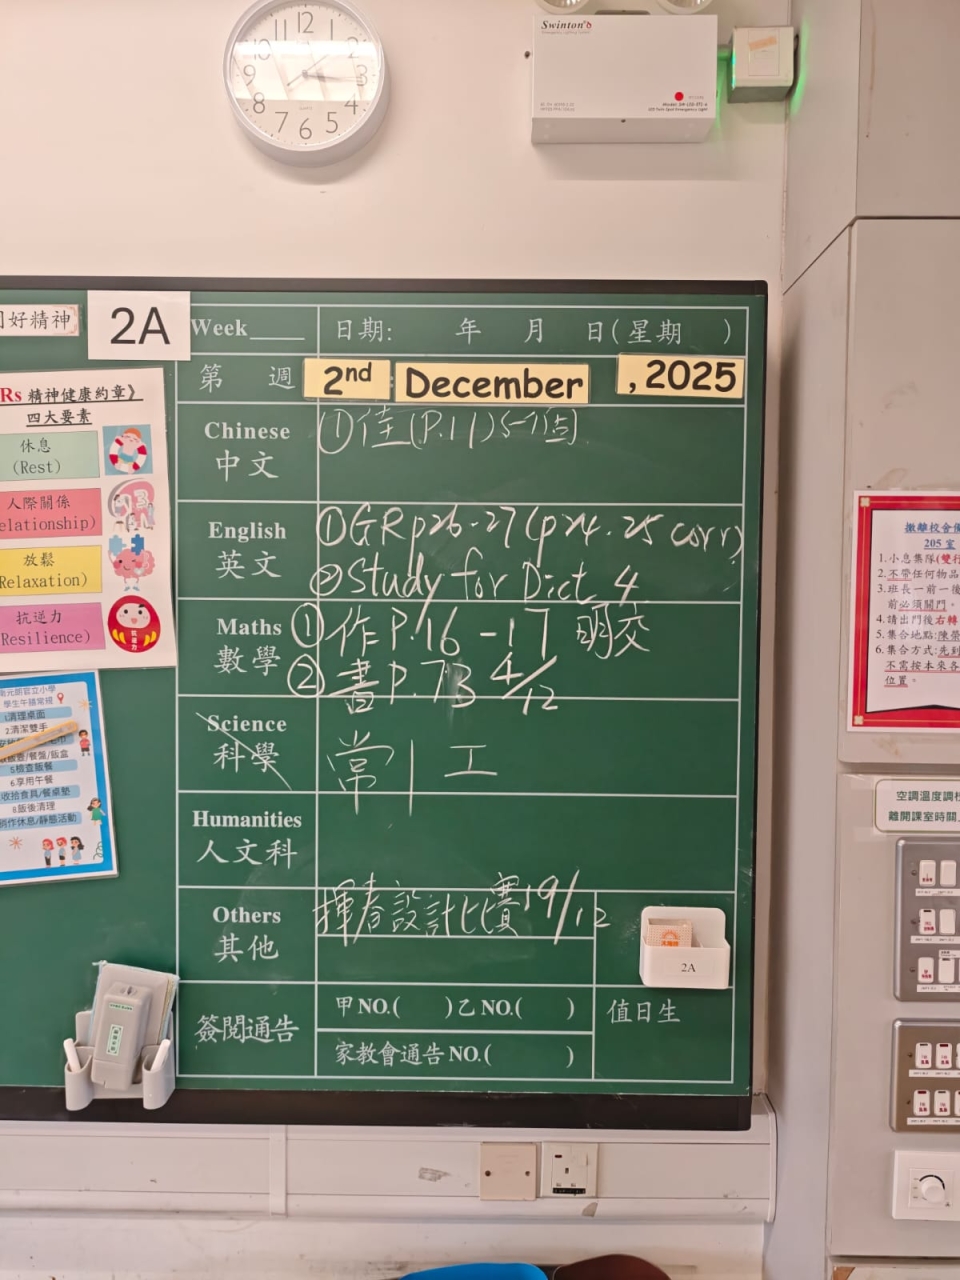 12
1
2
3
4
5
6
7
8
9
10
Swinton
2A
好精神
Week____ 日期: 年 月 日(星期 )
第 週 2nd December , 2025
Rs 精神健康約章》
四大要素
休息
(Rest)
人際關係
elationship)
放鬆
Relaxation)
抗逆力
Resilience)
Chinese
中文
①佳(P.11)5-1個
English
英文
①GR p26-27 (p24.25 corr)
②Study for Dict 4
Maths
數學
①作P.16-17 明交
②書P.73 4/12
Science
科學
常| 工
Humanities
人文科
Others
其他
揮春設計比賽19/12
2A
簽閱通告
甲NO.( )乙NO.( )
家教會通告NO.( )
值日生
元朗官立小學
學生午膳常規
1清理桌面
2.清潔雙手
飯壺/餐盤/飯盒
5檢查飯餐
6.享用午餐
收拾食具/餐桌墊
8.飯後清理
作休息/靜態活動
撤離校舍
205室
1.小息集隊(雙行
2.不帶任何物品
3.班長一前一後
前必須關門。
4.請出門後右轉
5.集合地點:陳榮
6.集合方式:先到
不需按本來各
位置。
空調溫度調
離開課室時關